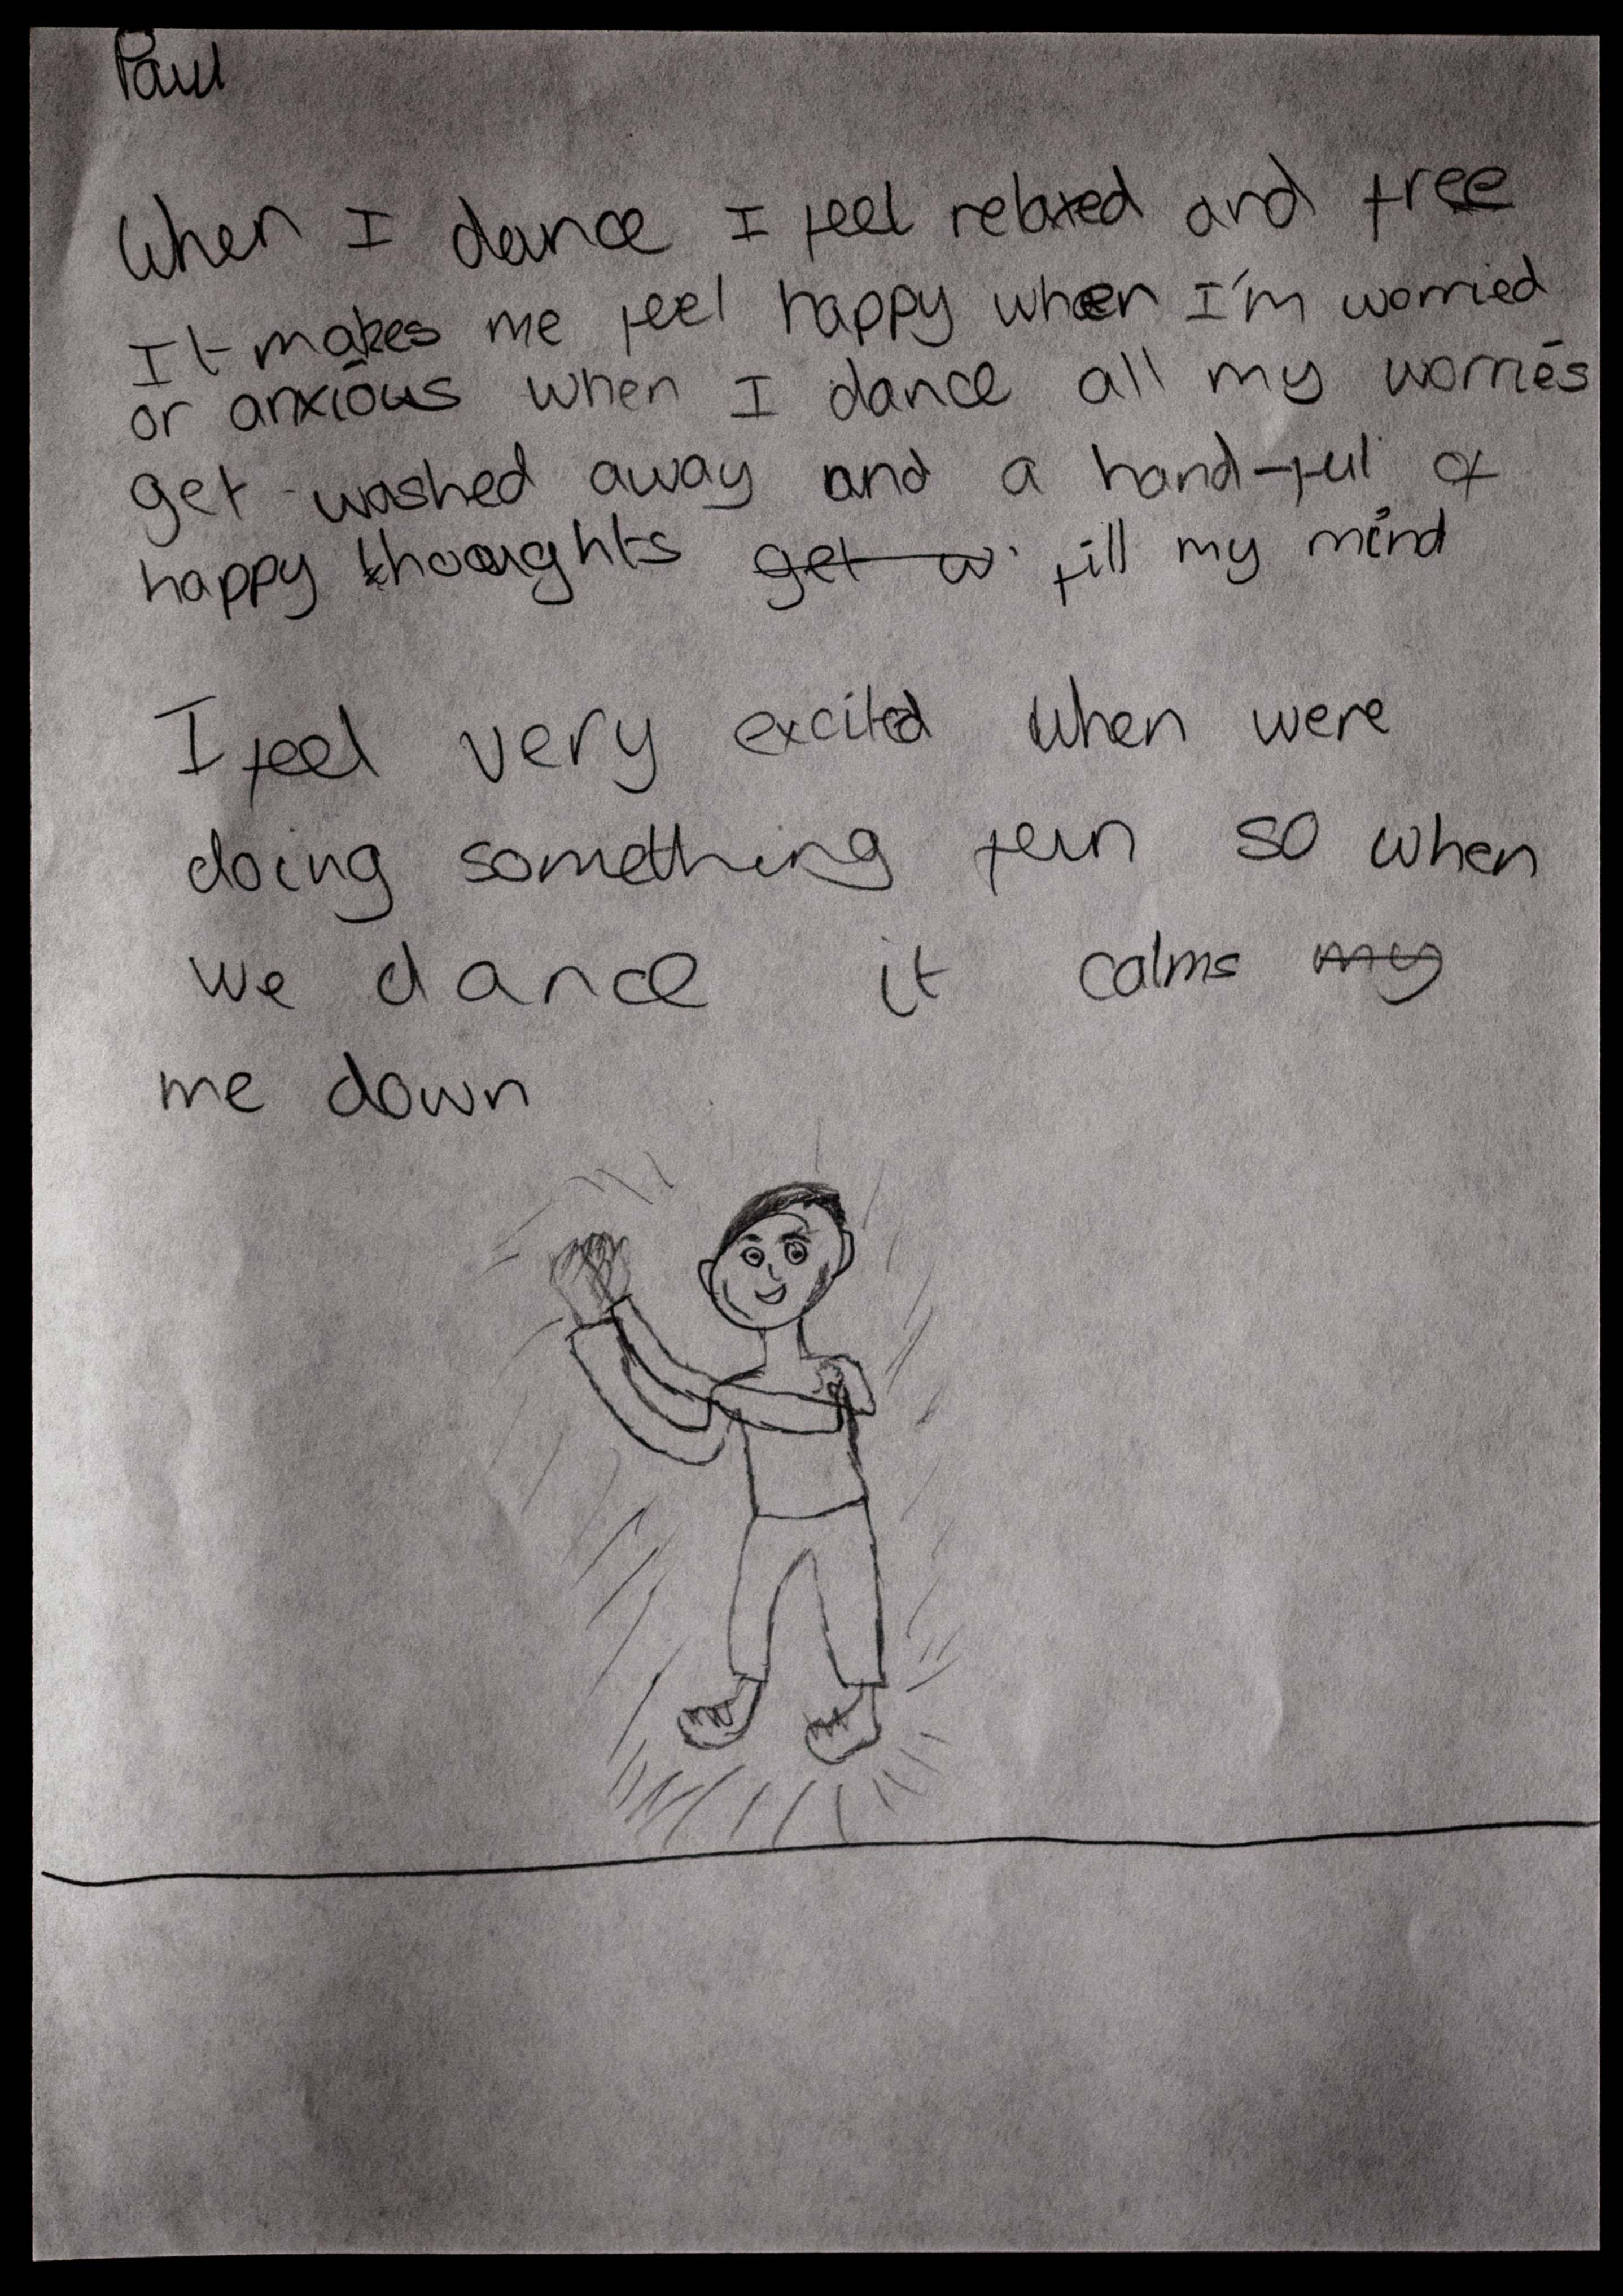 Paul
When I dance I feel relaxed and free
It makes me feel happy when I'm worried
or anxious when I dance all my worries
get washed away and a hand-ful of
happy thoughts get w fill my mind
I feel very excited when were
doing something fun so when
we dance it calms my
me down